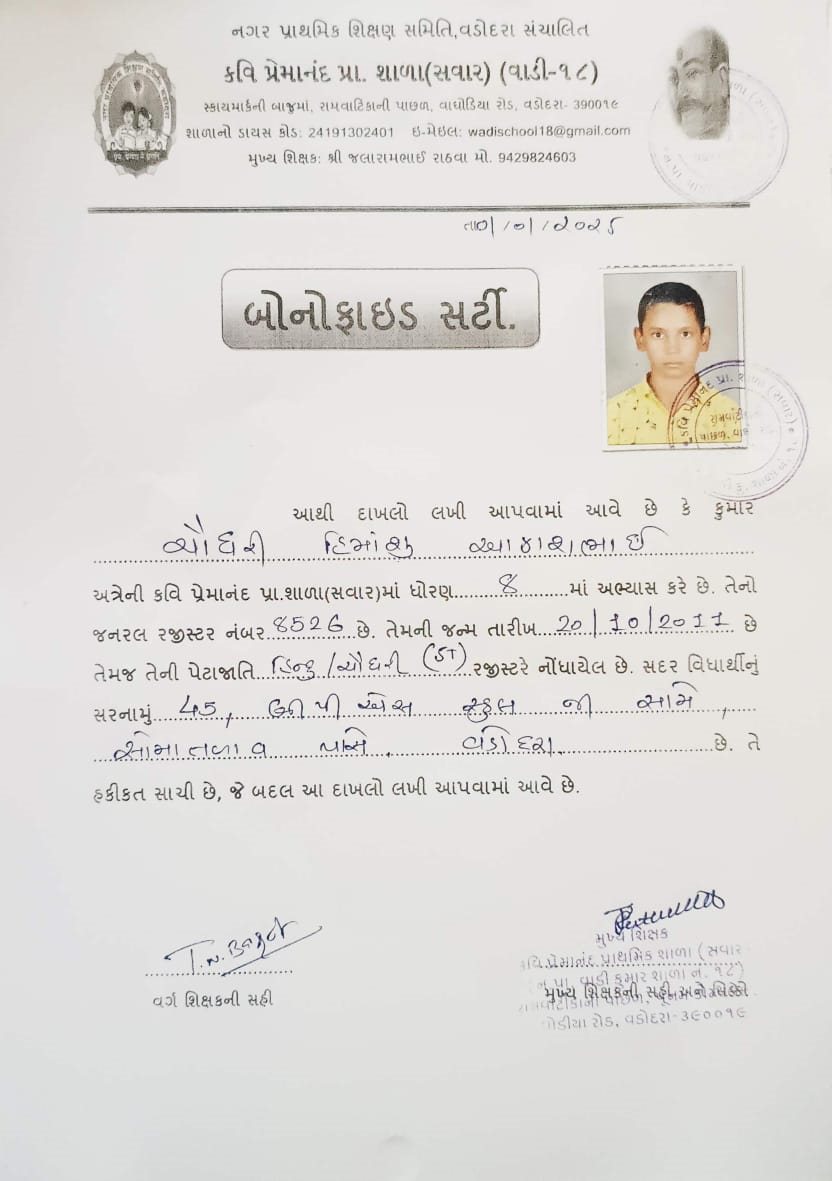 નગર પ્રાથમિક શિક્ષણ સમિતિ,વડોદરા સંચાલિત
કવિ પ્રેમાનંદ પ્રા. શાળા(સવાર) (વાડી-૧૮)
સ્કાયમાર્કની બાજુમાં, રામવાટિકાની પાછળ, વાઘોડિયા રોડ, વડોદરા- 390019
શાળાનો ડાયસ કોડ: 24191302401 ઇ-મેઇલ: wadischool18@gmail.com
મુખ્ય શિક્ષક: શ્રી જલારામભાઈ રાઠવા મો. 9429824603
તા
બોનોફાઇડ સર્ટી.
આથી દાખલો લખી આપવામાં આવે છે કે કુમાર
ચૌધરી હિમાંશુ આકાશભાઈ
અત્રેની કવિ પ્રેમાનંદ પ્રા.શાળા(સવાર)માં ધોરણ 8 માં અભ્યાસ કરે છે. તેનો
જનરલ રજીસ્ટર નંબર 8526 છે. તેમની જન્મ તારીખ 20/10/2011 છે
તેમજ તેની પેટાજાતિ હિન્દુ/ચૌધરી (ST) રજીસ્ટરે નોંધાયેલ છે. સદર વિધાર્થીનું
સરનામું 45, સ્કુલ ની સામે,
સોમા તળાવ પાસે, વડોદરા. છે. તે
હકીકત સાચી છે, જે બદલ આ દાખલો લખી આપવામાં આવે છે.
વર્ગ શિક્ષકની સહી
મુખ્ય શિક્ષક
કવિ પ્રેમાનંદ પ્રાથમિક શાળા (સવાર
વાડી કુમાર શાળા નં. ૧૮)
મુખ્ય શિક્ષકની સહી અને સિક્કો
રોડ, વડોદરા-૩૯૦૦૧૯